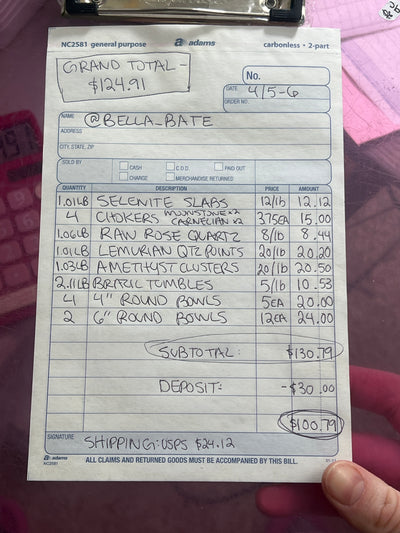 NC2581 general purpose adams carbonless • 2-part
GRAND TOTAL -
$124.91
No.
DATE 4/5-6
ORDER NO.
NAME @BELLA_BATE
ADDRESS
CITY, STATE, ZIP
SOLD BY CASH C.O.D. PAID OUT
CHARGE MERCHANDISE RETURNED
QUANTITY DESCRIPTION PRICE AMOUNT
1.01LB SELENITE SLABS 12/lb 12.12
4 CHOKERS MOONSTONE x2 CARNELIAN x2 375EA 15.00
1.06LB RAW ROSE QUARTZ 8/lb 8.44
1.01LB LEMURIAN QTZ POINTS 20/lb 20.20
1.03LB AMETHYST CLUSTERS 20/lb 20.50
2.11LB BRAZIL TUMBLES 5/lb 10.53
4 4" ROUND BOWLS 5EA 20.00
2 6" ROUND BOWLS 12EA 24.00
SUBTOTAL: $130.79
DEPOSIT: -$30.00
$100.79
SIGNATURE SHIPPING: USPS $24.12
adams
NC2581 ALL CLAIMS AND RETURNED GOODS MUST BE ACCOMPANIED BY THIS BILL.